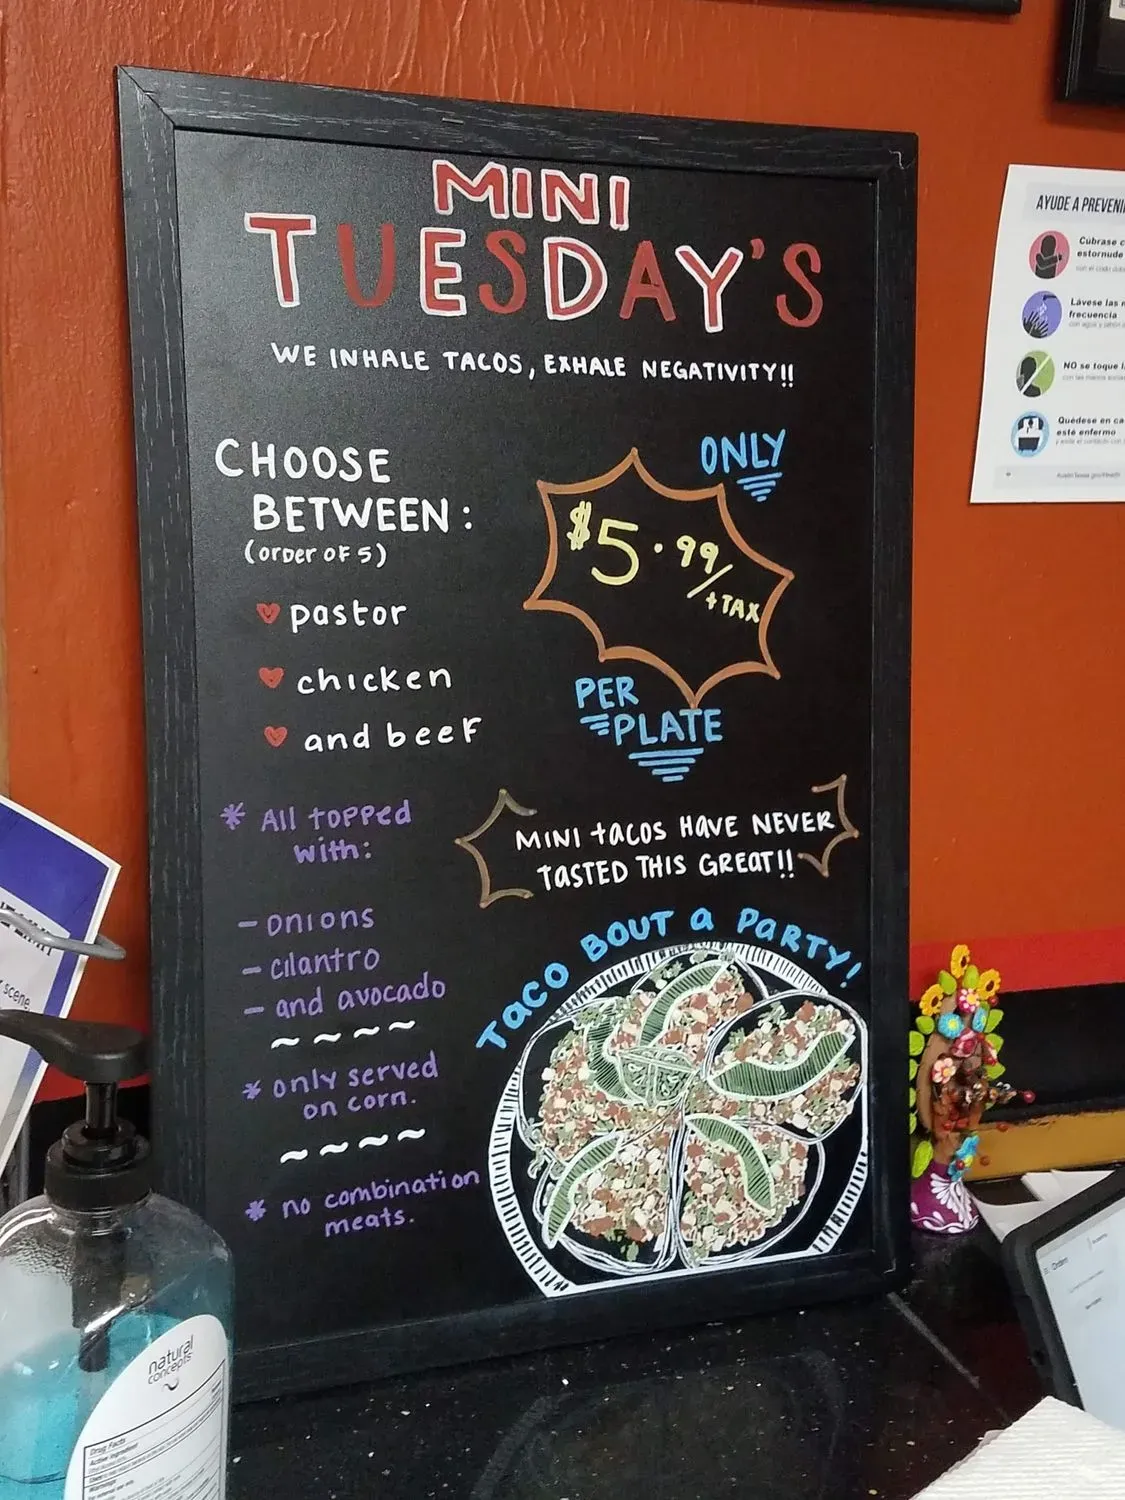 MINI
TUESDAY'S
WE INHALE TACOS, EXHALE NEGATIVITY!!
CHOOSE
BETWEEN:
(order of 5)
pastor
chicken
and beef
ONLY
$5.99/+TAX
PER
PLATE
* All topped
with:
- onions
- cilantro
- and avocado
~~~~
* only served
on corn.
~~~~
* no combination
meats.
MINI tacos HAVE NEVER
TASTED THIS GREAT!!
Taco BOUT a PARTY!
AYUDE A PREVENI
Cúbrase c
estornude
Lávese las
frecuencia
NO se toque l
Quédese en ca
esté enfermo
scene
natural
concepts
Drug Facts
Active ingredient
Warnings
Orders